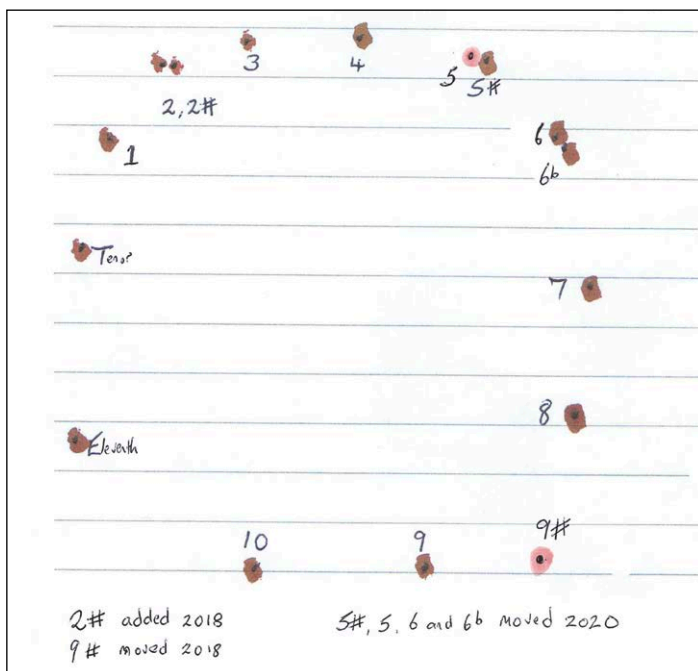 3
4
5
5#
2, 2#
1
6
6b
Tenor
7
8
Eleventh
10
9
9#
2# added 2018
9# moved 2018
5#, 5, 6 and 6b moved 2020